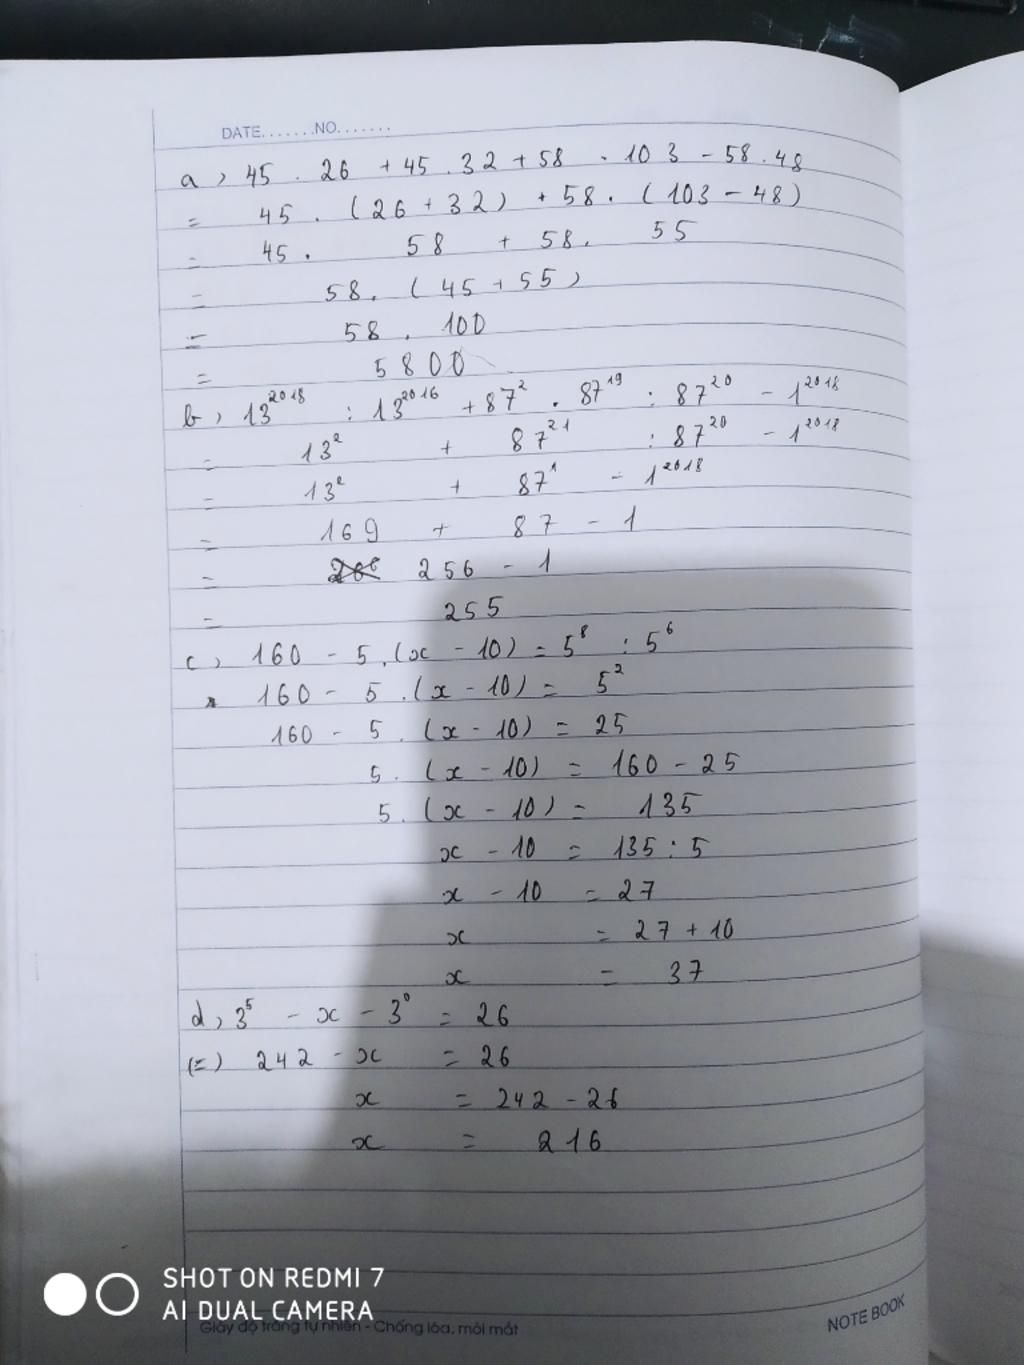 DATE.......NO.......
a) 45 . 26 + 45 . 32 + 58 . 103 - 58 . 48
= 45 . (26 + 32) + 58 . (103 - 48)
= 45 . 58 + 58 . 55
= 58 . (45 + 55)
= 58 . 100
= 5800
b) 13²⁰¹⁸ : 13²⁰¹⁶ + 87² . 87¹⁹ : 87²⁰ - 1²⁰¹⁸
= 13² + 87²¹ : 87²⁰ - 1²⁰¹⁸
= 13² + 87¹ - 1²⁰¹⁸
= 169 + 87 - 1
= 256 - 1
= 255
c) 160 - 5 . (x - 10) = 5⁸ : 5⁶
160 - 5 . (x - 10) = 5²
160 - 5 . (x - 10) = 25
5 . (x - 10) = 160 - 25
5 . (x - 10) = 135
x - 10 = 135 : 5
x - 10 = 27
x = 27 + 10
x = 37
d) 3⁵ - x - 3⁰ = 26
(=) 242 - x = 26
x = 242 - 26
x = 216
SHOT ON REDMI 7
AI DUAL CAMERA
Giấy độ trắng tự nhiên - Chống lóa, mỏi mắt
NOTE BOOK